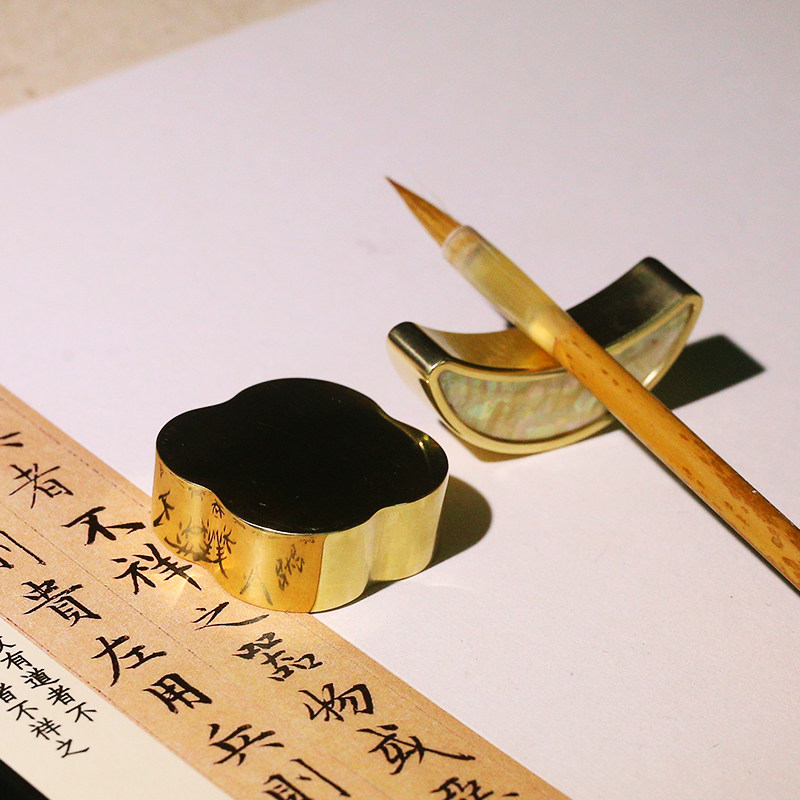 者不祥之器物或
貴左用兵則
有道者不
者不祥之